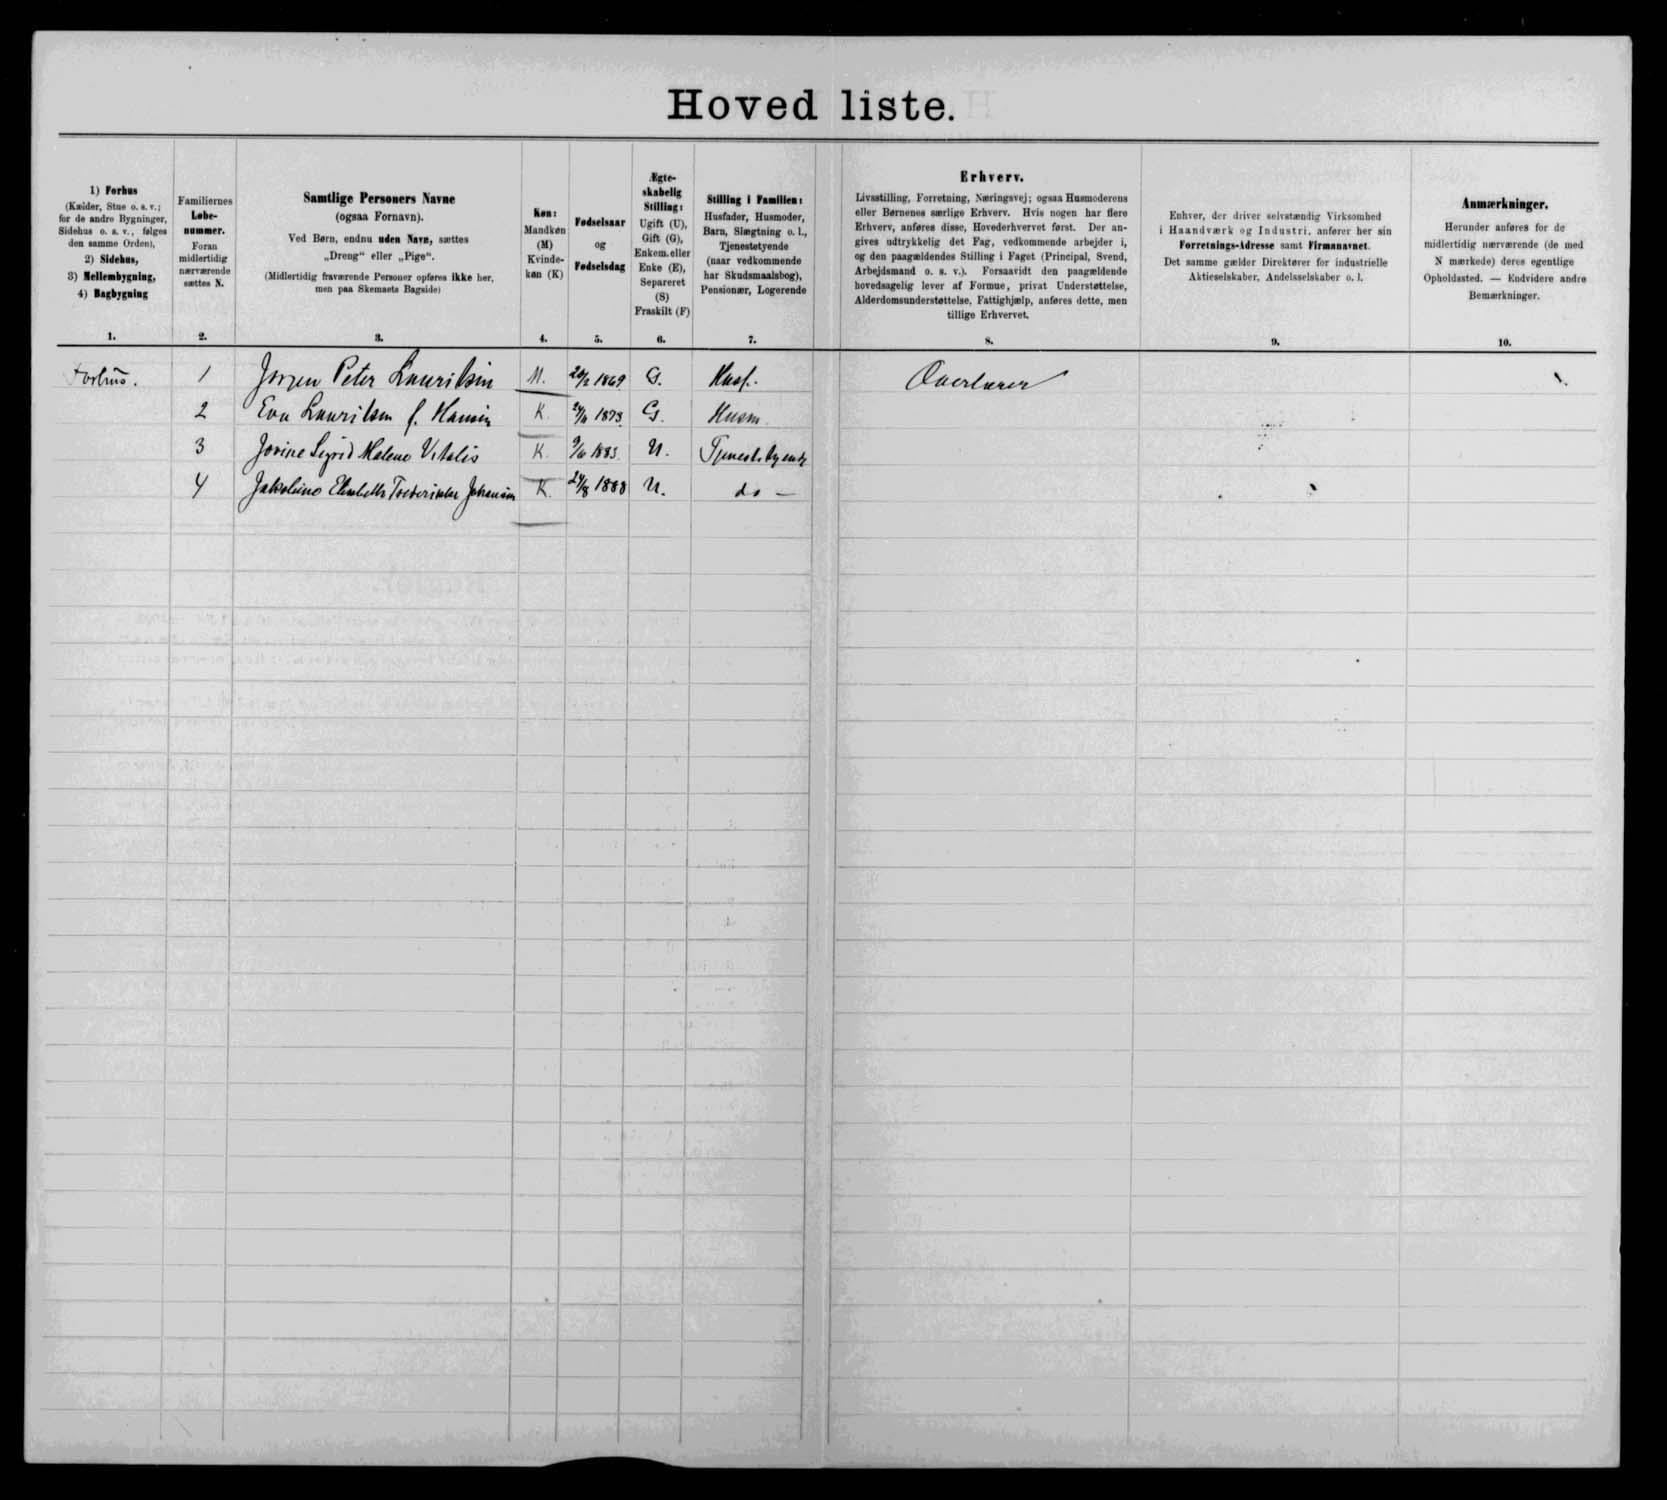 Hoved liste.
1) Forhus
(Kælder, Stue o. s. v.;
for de andre Bygninger,
Sidehus o. s. v., følges
den samme Orden),
2) Sidehus,
3) Mellembygning,
4) Bagbygning
1.
Familiernes
Løbe-
nummer.
Foran
midlertidig
nærværende
sættes N.
2.
Samtlige Personers Navne
(ogsaa Fornavn).
Ved Børn, endnu uden Navn, sættes
„Dreng“ eller „Pige“.
(Midlertidig fraværende Personer opføres ikke her,
men paa Skemaets Bagside)
3.
Køn:
Mandkøn
(M)
Kvinde-
køn (K)
4.
Fødselsaar
og
Fødselsdag
5.
Ægte-
skabelig
Stilling:
Ugift (U),
Gift (G),
Enkem. eller
Enke (E),
Separeret
(S)
Fraskilt (F)
6.
Stilling i Familien:
Husfader, Husmoder,
Barn, Slægtning o. l.,
Tjenestetyende
(naar vedkommende
har Skudsmaalsbog),
Pensionær, Logerende
7.
Erhverv.
Livsstilling, Forretning, Næringsvej; ogsaa Husmoderens
eller Børnenes særlige Erhverv. Hvis nogen har flere
Erhverv, anføres disse, Hovederhvervet først. Der an-
gives udtrykkelig det Fag, vedkommende arbejder i,
og den paagældendes Stilling i Faget (Principal, Svend,
Arbejdsmand o. s. v.). Forsaavidt den paagældende
hovedsagelig lever af Formue, privat Understøttelse,
Alderdomsunderstøttelse, Fattighjælp, anføres dette, men
tillige Erhvervet.
8.
Enhver, der driver selvstændig Virksomhed
i Haandværk og Industri, anfører her sin
Forretnings-Adresse samt Firmanavnet.
Det samme gælder Direktører for industrielle
Aktieselskaber, Andelsselskaber o. l.
9.
Anmærkninger.
Herunder anføres for de
midlertidig nærværende (de med
N mærkede) deres egentlige
Opholdssted. — Endvidere andre
Bemærkninger.
10.
Forhus. 1 Jørgen Peter Lauritsen M. 1869 G. Husf. Overlærer
2 Eva Lauritsen f. Hansen K. 1873 G. Husm.
3 Jovine Sigrid Malene Vitalis K. 1883 U. Tjenestetyende
4 Elisabeth Johansen K. 24/8 1888 U. do —